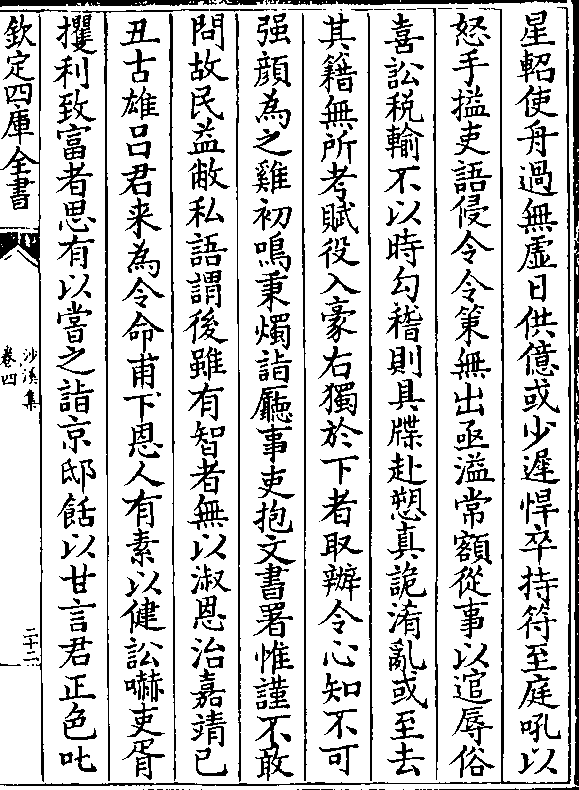 星軺使舟過無虚日供億或少遲悍卒持符至庭吼以
怒手搤吏語侵令令策無出亟溢常額從事以逭辱俗
喜訟税輸不以時勾稽則具牒赴愬真詭淆亂或至去
其籍無所考賦役入豪右獨於下者取辦令心知不可
强顔為之雞初鳴秉燭詣㕔事吏抱文書署惟謹不敢
問故民益敝私語謂後雖有智者無以淑恩治嘉靖己
丑古雄吕君来為令命甫下恩人有素以健訟嚇吏胥
攫利致富者思有以嘗之詣京邸餂以甘言君正色叱
欽定四庫全書
沙溪集
卷四
二十二